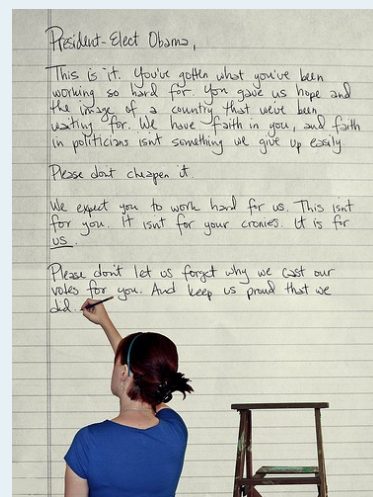 President-Elect Obama,
This is it. You've gotten what you've been
working so hard for. You gave us hope and
the image of a country that we've been
waiting for. We have faith in you, and faith
in politicians isn't something we give up easily
Please don't cheapen it.
We expect you to work hard for us. This isn't
for you. It isn't for your cronies. It is for
us.
Please don't let us forget why we cast our
votes for you. And keep us proud that we
did.